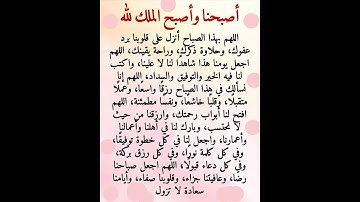 أصبحنا وأصبح الملك لله
اللهم بهذا الصباح أنزل على قلوبنا برد
عفوك، وحلاوة ذكرك، وراحة يقينك، اللهم
اجعل يومنا هذا شاهدًا لنا لا علينا، واكتب
لنا فيه الخير والتوفيق والسداد، اللهم إنا
نسألك في هذا الصباح رزقًا واسعًا، وعملًا
متقبلًا، وقلبًا خاشعًا، ونفسًا مطمئنة، اللهم
افتح لنا أبواب رحمتك، وارزقنا من حيث
لا نحتسب، وبارك لنا في أهلنا وأعمالنا
وأعمارنا، واجعل لنا في كل خطوة توفيقًا،
وفي كل كلمة نورًا، وفي كل رزق بركة،
وفي كل دعاء قبولًا، اللهم اجعل صباحنا
رضا، وعافيتنا جزاء، وقلوبنا صفاء، وأيامنا
سعادة لا تزول